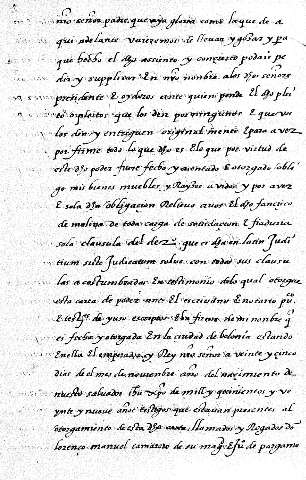 mio señor padre que aya gloria como la que de a
qui adelante vuieremos de lleuar y gozar y pa
que hecho el dho assiento y concierto podais pe
dir y suplicar En mio nonbre a los dhos señores
presidente E oydores ante quien pende El dho plei
to o pleitos que lo den por ninguno E que vos
los den y entreguen original mente E para aver
por firme todo lo que dho es E lo que por virtud de
este dho poder fuere fecho y asentado E otorgado obli
go mis bienes muebles y Rayzes avidos y por aver
E so la dha obligaçion Relieuo a vos El dho francisco
de molina de toda carga de satisdacion E fiaduria
so la clausula del derº que es dha en latin Judi
tium sisti Judicatum solui con todas sus clausu
las acostumbradas En testimonio de lo qual otorgue
esta carta de poder ante El escriuano E notario pu
E testigos de yuso escriptos E lo firme de mi nonbre q
es fecha y otorgada En la ciudad de bolonia estando
En ella El enperador y Rey nro señor a veinte y cinco
dias de el mes de nouiembre año del nacimiento de
nuestro saluador ihu xpo de mill y quinientos y ve
ynte y nueue años testigos que estauan presentes al
otorgamiento de esta dha carta llamados y Rogados don
lorenço manuel camarero de su magd